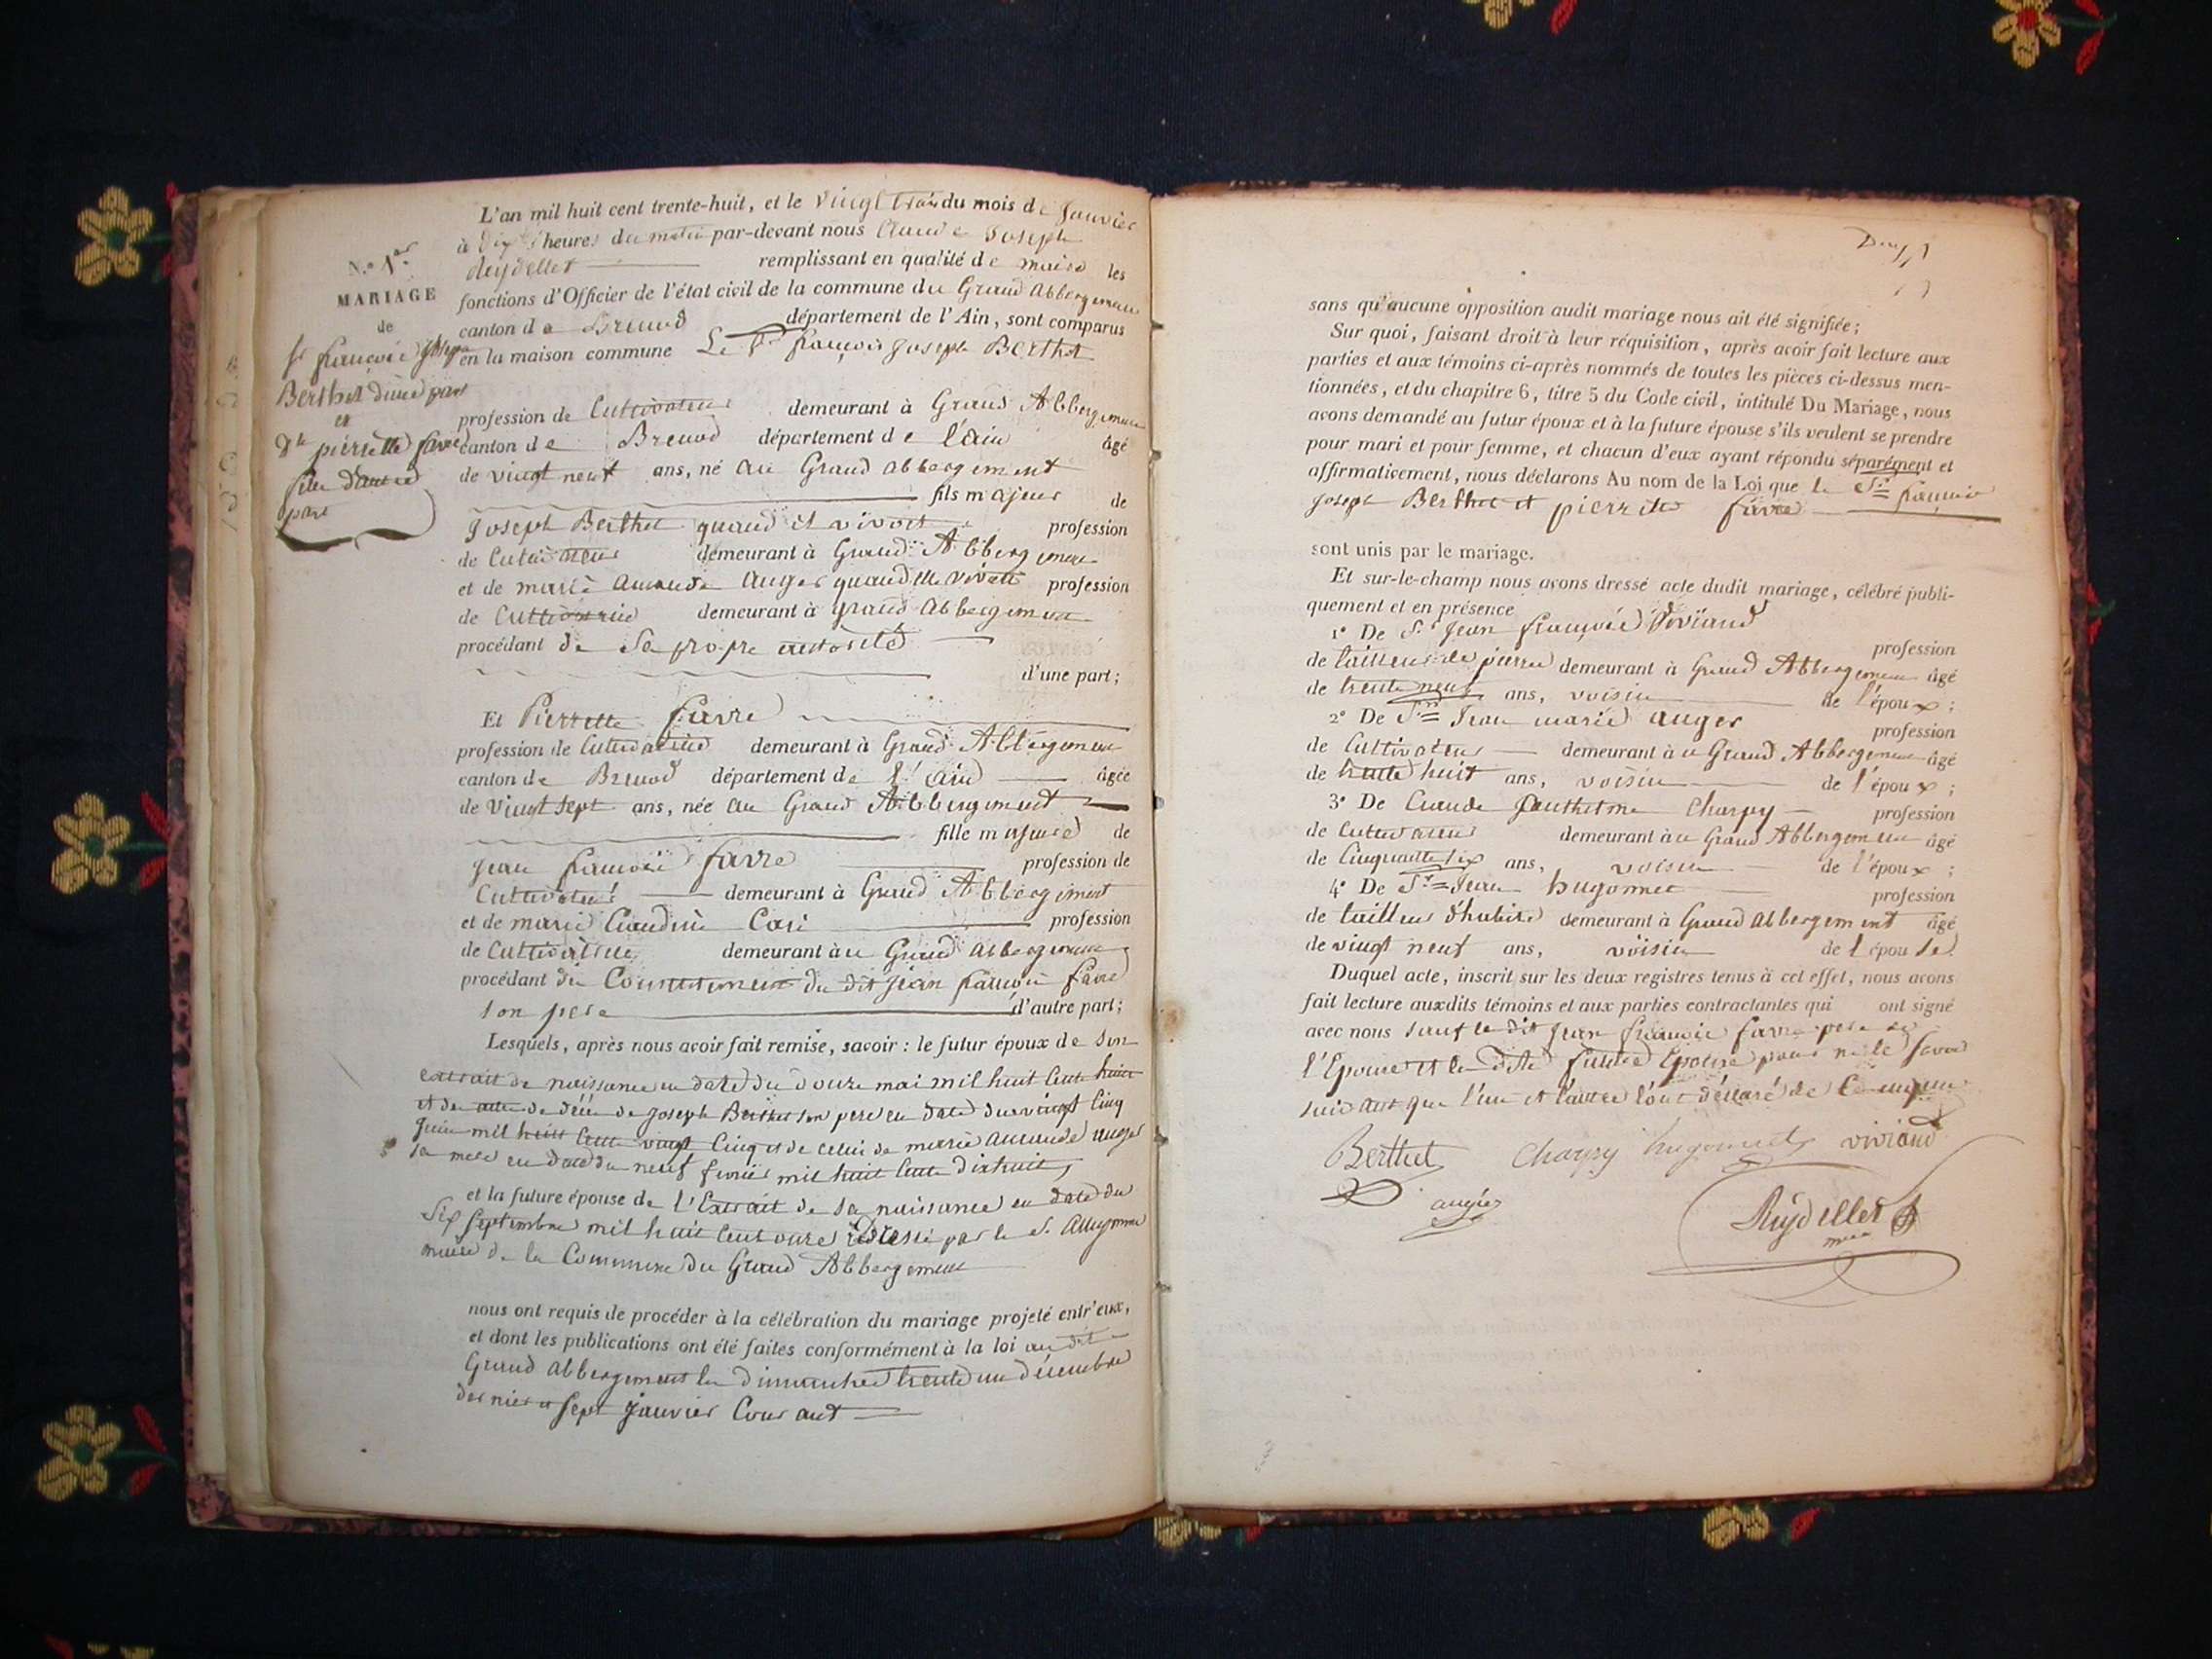 L'an mil huit cent trente-huit, et le vingt trois du mois de Janvier
à dix heures du matin par-devant nous Claude Joseph
Reydellet remplissant en qualité de maire les
fonctions d'Officier de l'état civil de la commune du Grand Abbergement
canton de Brenod département de l'Ain, sont comparus
en la maison commune Le Sr françois Joseph Berthet
profession de Cultivateur demeurant à Grand Abbergement
canton de Brenod département de l'ain âgé
de vingt neuf ans, né au Grand abbergement
fils majeur de
Joseph Berthet quand il vivoit profession
de Cultivateur demeurant à Grand Abbergement
et de marie auger quand elle vivoit profession
de Cultivatrice demeurant à grand abbergement
procédant de Sa propre autorité
d'une part;
N.o 1er
MARIAGE
de
Sr françois Joseph
Berthet d'une part
et
Dlle pierrette favre
fille d'autre
part
Et Pierrette favre
profession de Cultivatrice demeurant à Grand Abbergement
canton de Brenod département de l'ain âgée
de vingt sept ans, née au Grand Abbergement
fille majeure de
Jean françois favre profession de
Cultivateur demeurant à Grand Abbergement
et de marie Claudine profession
de Cultivatrice demeurant au Grand abbergement
procédant du Consentement du dit jean françois favre
son pere d'autre part;
Lesquels, après nous avoir fait remise, savoir : le futur époux de son
extrait de naissance en date du douze mai mil huit Cent huit
et de acte de décé de Joseph Berthet son pere en date du vingt Cinq
Juin mil huit Cent vingt Cinq et de celui de marie auger
sa mere en date du neuf fevrier mil huit Cent dix huit,
et la future épouse de l'Extrait de sa naissance en date du
Six septembre mil huit Cent onze par le S.
maire de la Commune du Grand Abbergement
nous ont requis de procéder à la célébration du mariage projeté entr'eux,
et dont les publications ont été faites conformément à la loi au dit
Grand abbergement les dimanches trente un décembre
dernier et sept janvier Courant
sans qu'aucune opposition audit mariage nous ait été signifiée;
Sur quoi, faisant droit à leur réquisition, après avoir fait lecture aux
parties et aux témoins ci-après nommés de toutes les pièces ci-dessus men-
tionnées, et du chapitre 6, titre 5 du Code civil, intitulé Du Mariage, nous
avons demandé au futur époux et à la future épouse s'ils veulent se prendre
pour mari et pour femme, et chacun d'eux ayant répondu séparément et
affirmativement, nous déclarons Au nom de la Loi que le Sr françois
joseph Berthet et pierrette favre
sont unis par le mariage.
Et sur-le-champ nous avons dressé acte dudit mariage, célébré publi-
quement et en présence
1° De Sr Jean françois Viviand profession
de tailleur de pierre demeurant à Grand Abbergement âgé
de trente neuf ans, voisin de l'époux;
2° De Sr Jean marie auger profession
de Cultivateur demeurant au Grand Abbergement âgé
de trente huit ans, voisin de l'époux;
3° De Claude Charpy profession
de Cultivateur demeurant au Grand Abbergement âgé
de Cinquante six ans, voisin de l'époux;
4° De Sr Jean hugonnet profession
de tailleur d'habits demeurant à Grand abbergement âgé
de vingt neuf ans, voisin de l'épouse
Duquel acte, inscrit sur les deux registres tenus à cet effet, nous avons
fait lecture auxdits témoins et aux parties contractantes qui ont signé
avec nous sauf le dit Jean françois favre pere de
l'Epouse et la dite future Epouse pour ne le savoir
que l'un et l'autre l'ont déclaré de
Berthet Charpy hugonnet viviand
auger Reydellet
maire